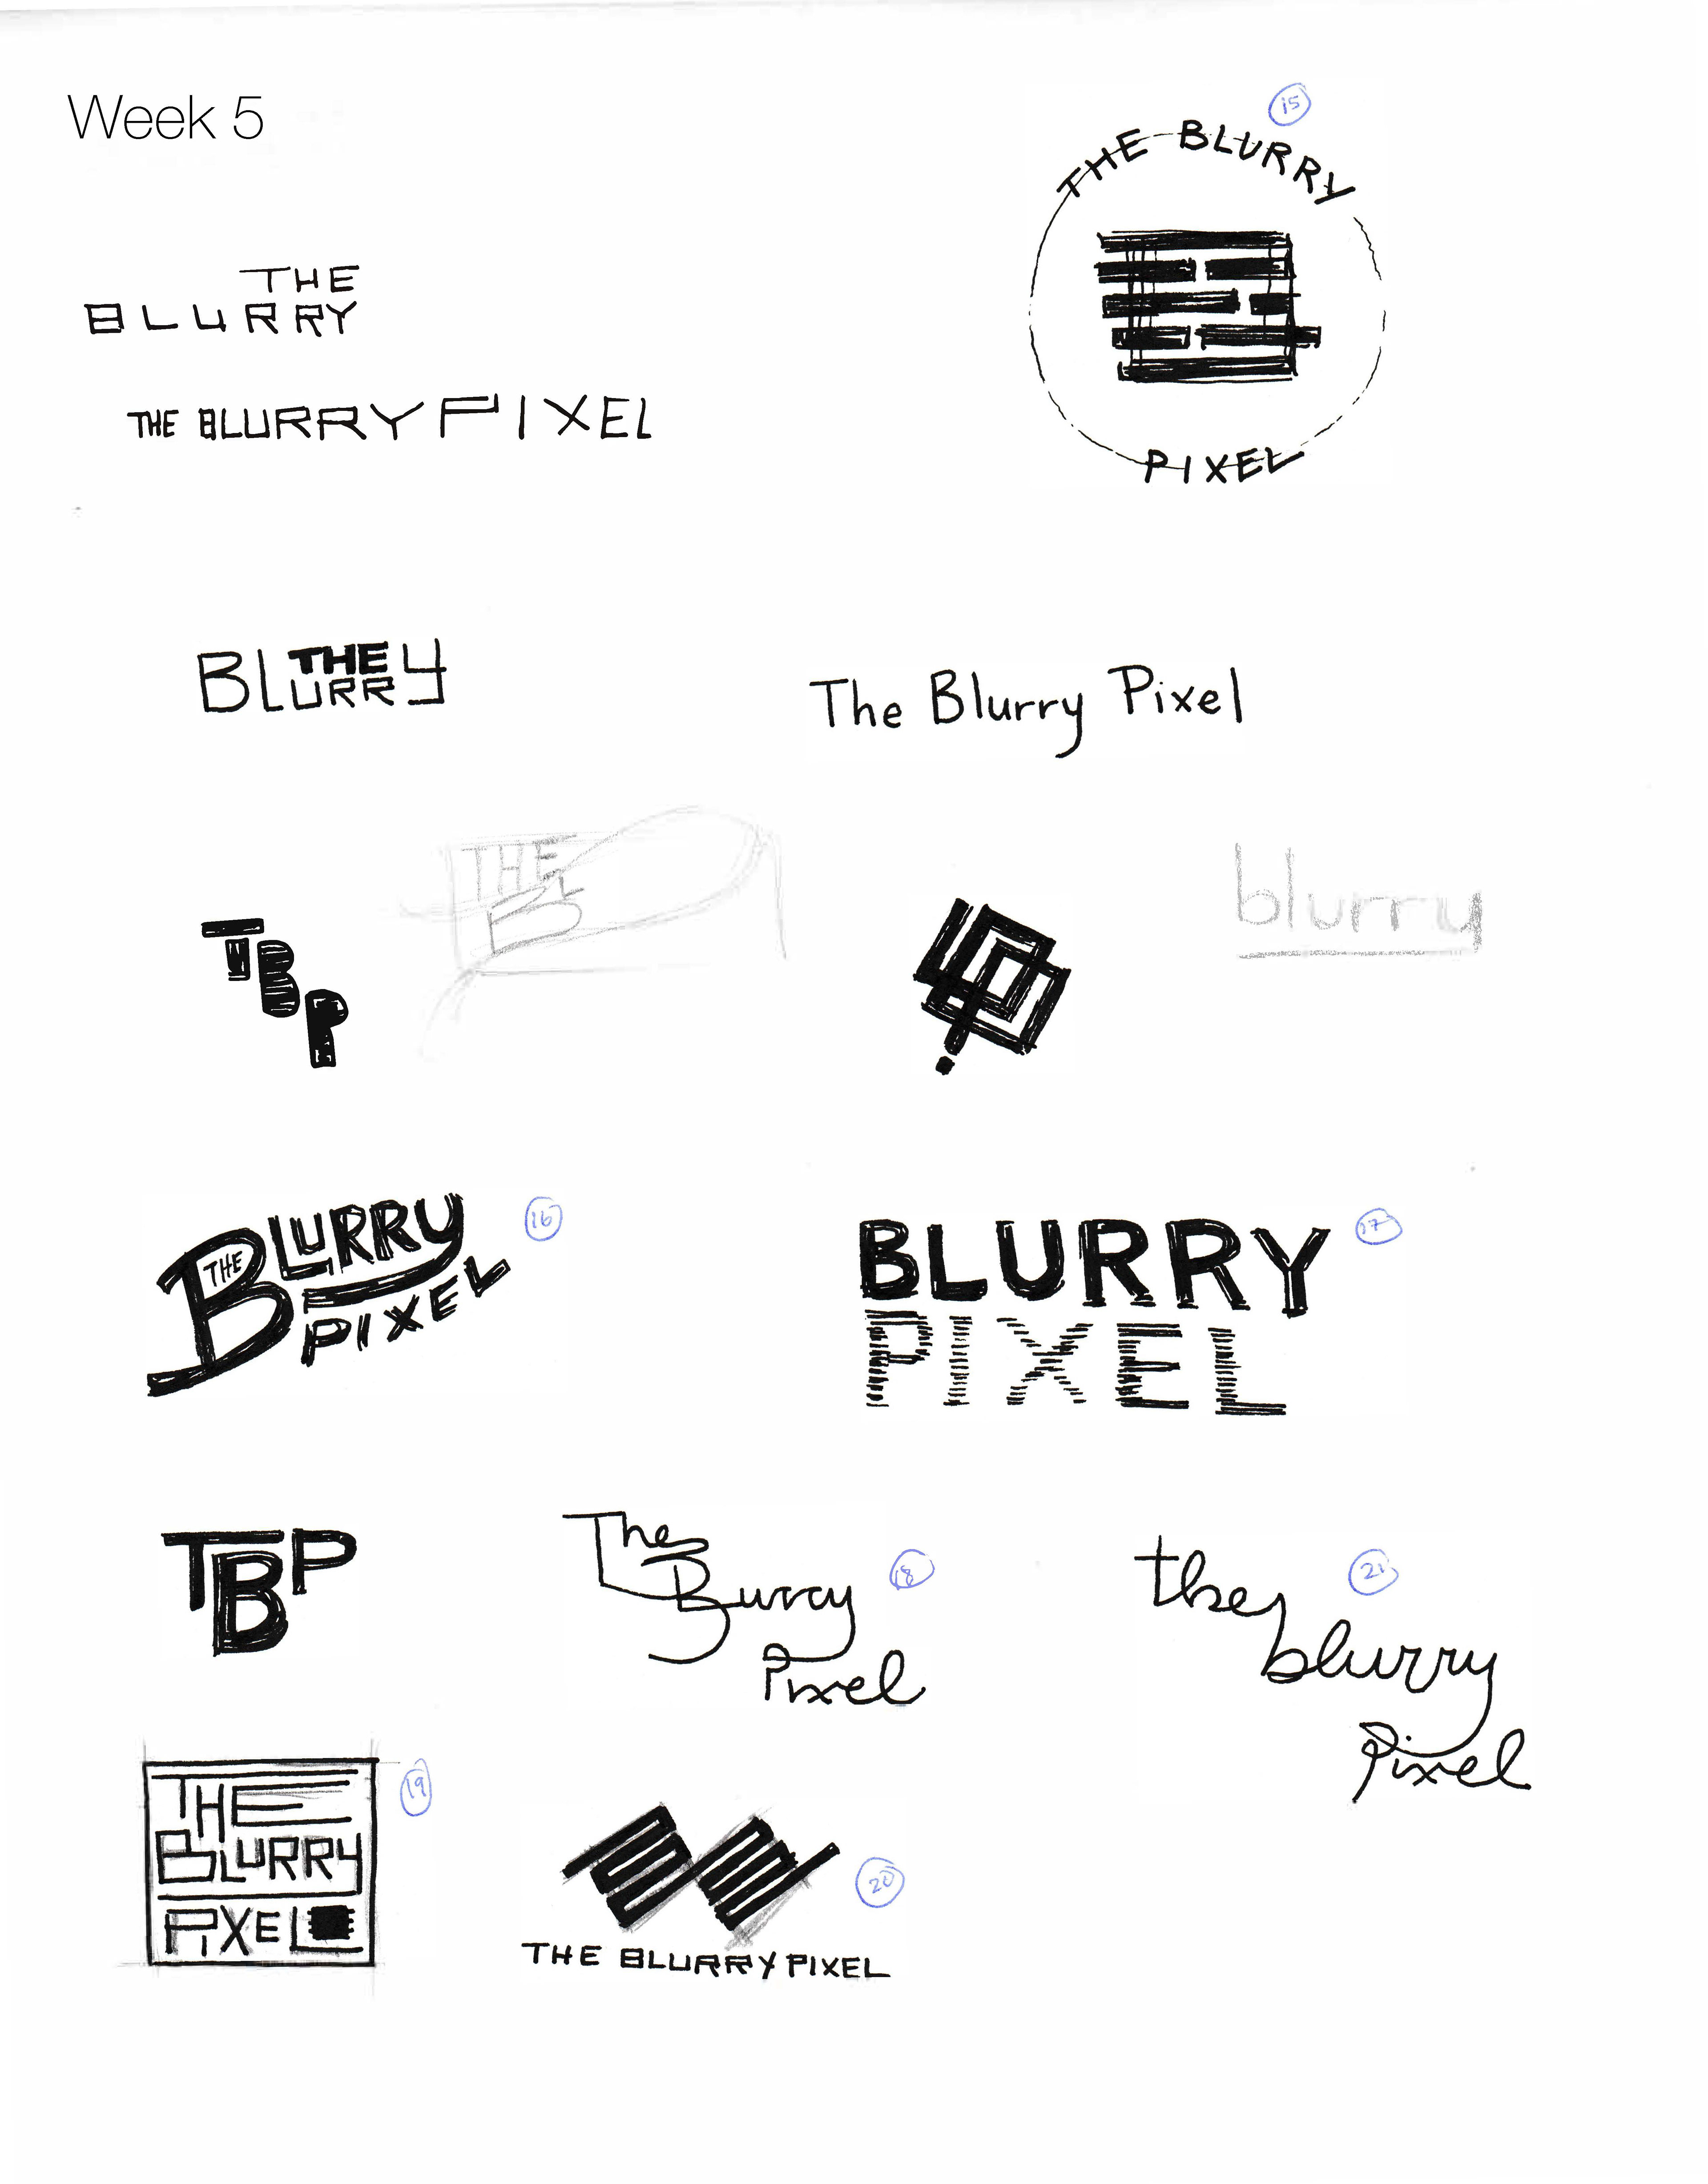 Week 5
15
THE BLURRY
PIXEL
THE
BLURRY
THE BLURRY PIXEL
THE
BLURRY
The Blurry Pixel
THE
BL
blurry
TBP
16
THE
BLURRY
PIXEL
17
BLURRY
PIXEL
TBP
18
The
Burry
Pixel
21
the
blurry
Pixel
19
THE
BLURRY
PIXEL
20
THE BLURRY PIXEL